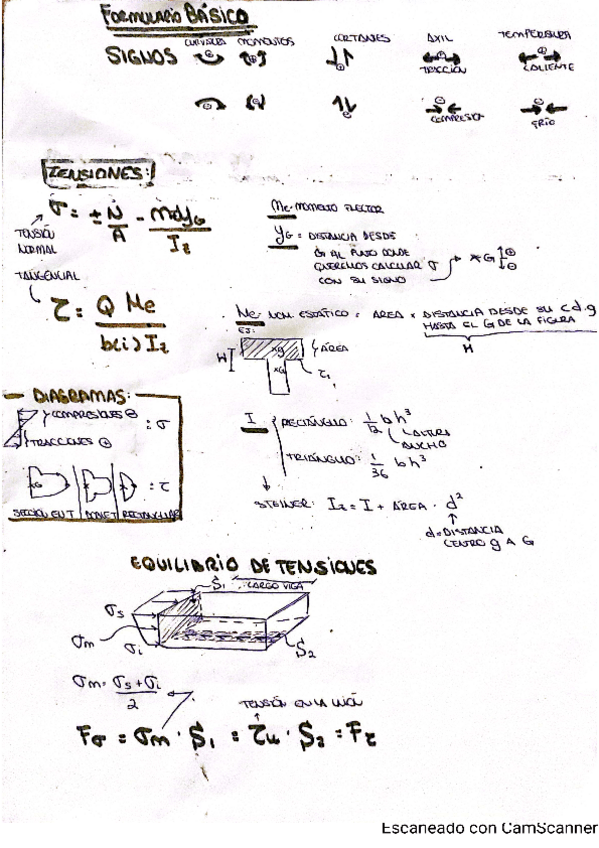 FORMULARIO BÁSICO
SIGNOS CURVATURA MOMENTOS CORTANTES AXIL TEMPERATURA
TRACCIÓN CALIENTE
COMPRESIÓN FRÍO
TENSIONES:
σ = ± N/A - Md yG / Iz
TENSIÓN NORMAL
Md: MOMENTO FLECTOR
yG = DISTANCIA DESDE
G AL PUNTO DONDE
QUEREMOS CALCULAR σ
CON SU SIGNO
TANGENCIAL
τ = Q Me / b(i) Iz
Me: MOM. ESTÁTICO = AREA × DISTANCIA DESDE SU c.d.g
HASTA EL G DE LA FIGURA
H
EJ:
H g ÁREA
G τ1
DIAGRAMAS:
COMPRESIONES ⊖
: σ
TRACCIONES ⊕
G : τ
SECCIÓN EN T DOBLE T RECTANGULAR
I RECTÁNGULO: 1/12 b h³
ALTURA
ANCHO
TRIÁNGULO: 1/36 b h³
STEINER: Iz = I + ÁREA · d²
d = DISTANCIA
CENTRO g A G
EQUILIBRIO DE TENSIONES
S1 LARGO VIGA
σs
σm
σi S2
σm = σs + σi / 2
TENSIÓN EN LA UNIÓN
Fσ = σm · S1 = τu · S2 = Fτ
Escaneado con CamScanner